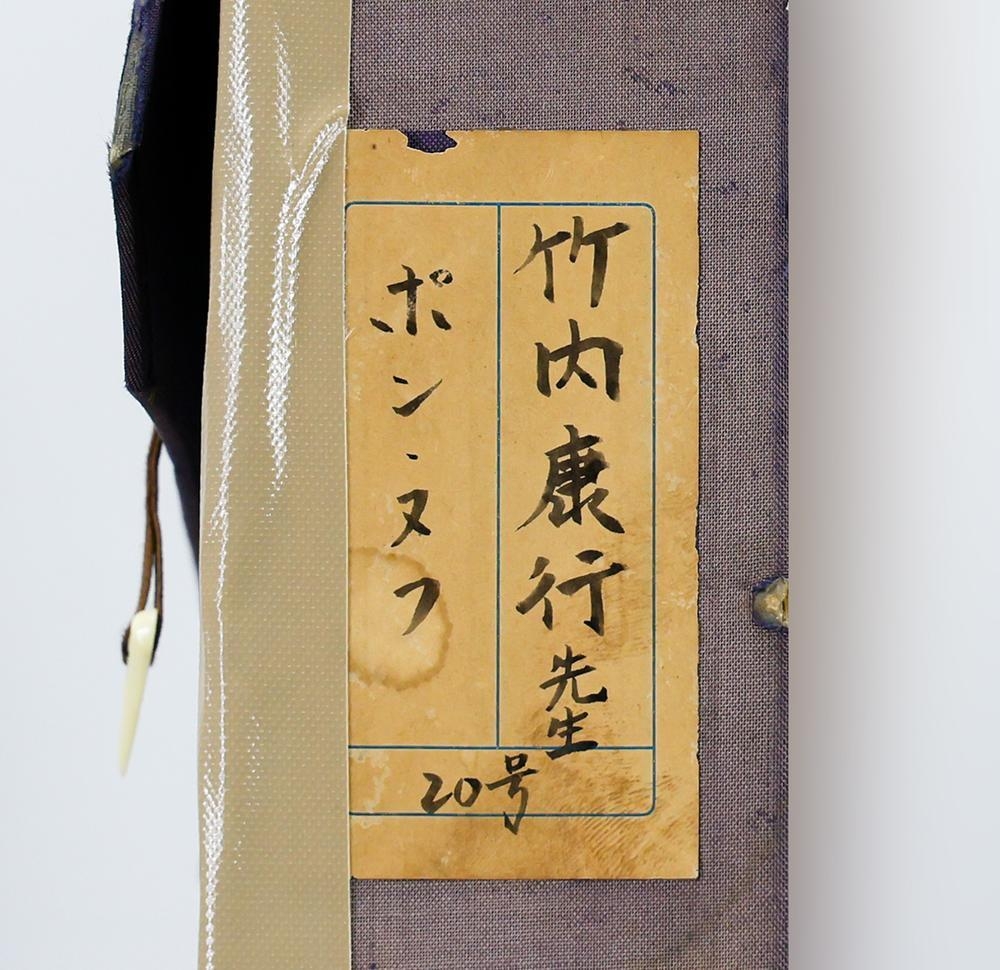 竹内康行先生
ポン・ヌフ
20号